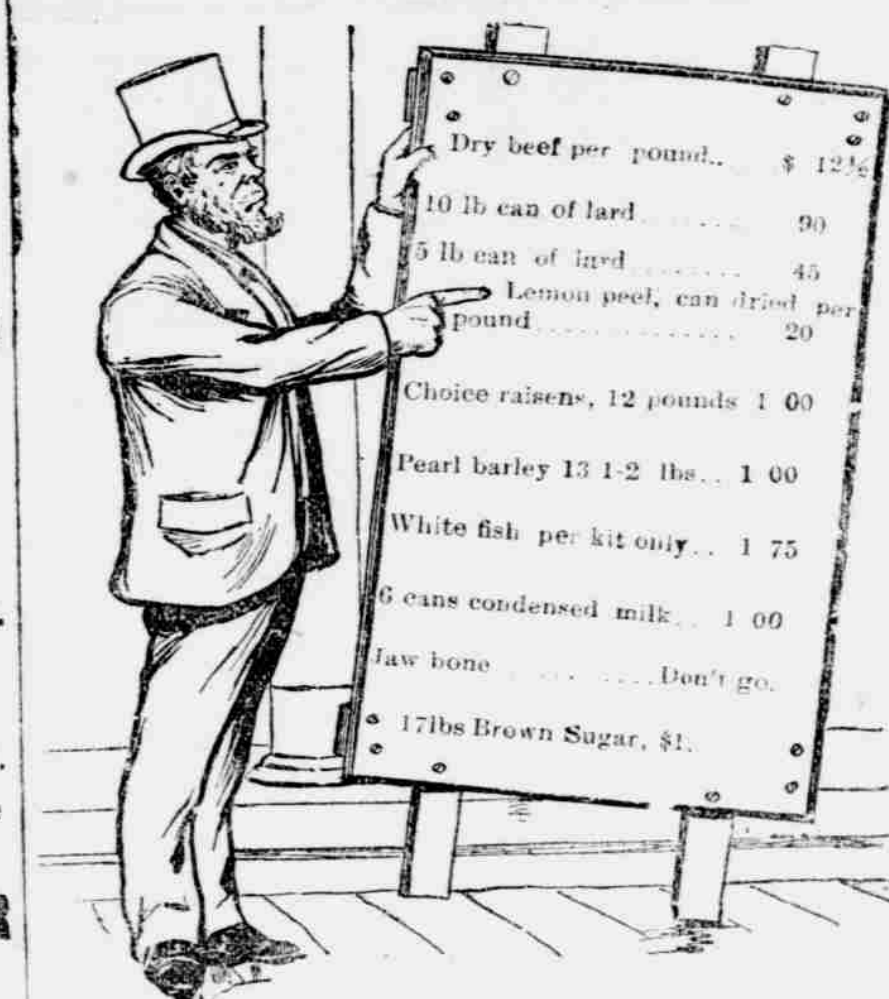 Dry beef per pound.. $ 12½
10 lb can of lard ........ 90
5 lb can of lard ........ 45
Lemon peel, can dried per
pound .............. 20
Choice raisens, 12 pounds 1 00
Pearl barley 13 1-2 lbs.. 1 00
White fish per kit only.. 1 75
6 cans condensed milk.. 1 00
Jaw bone ......... Don't go.
17lbs Brown Sugar, $1.